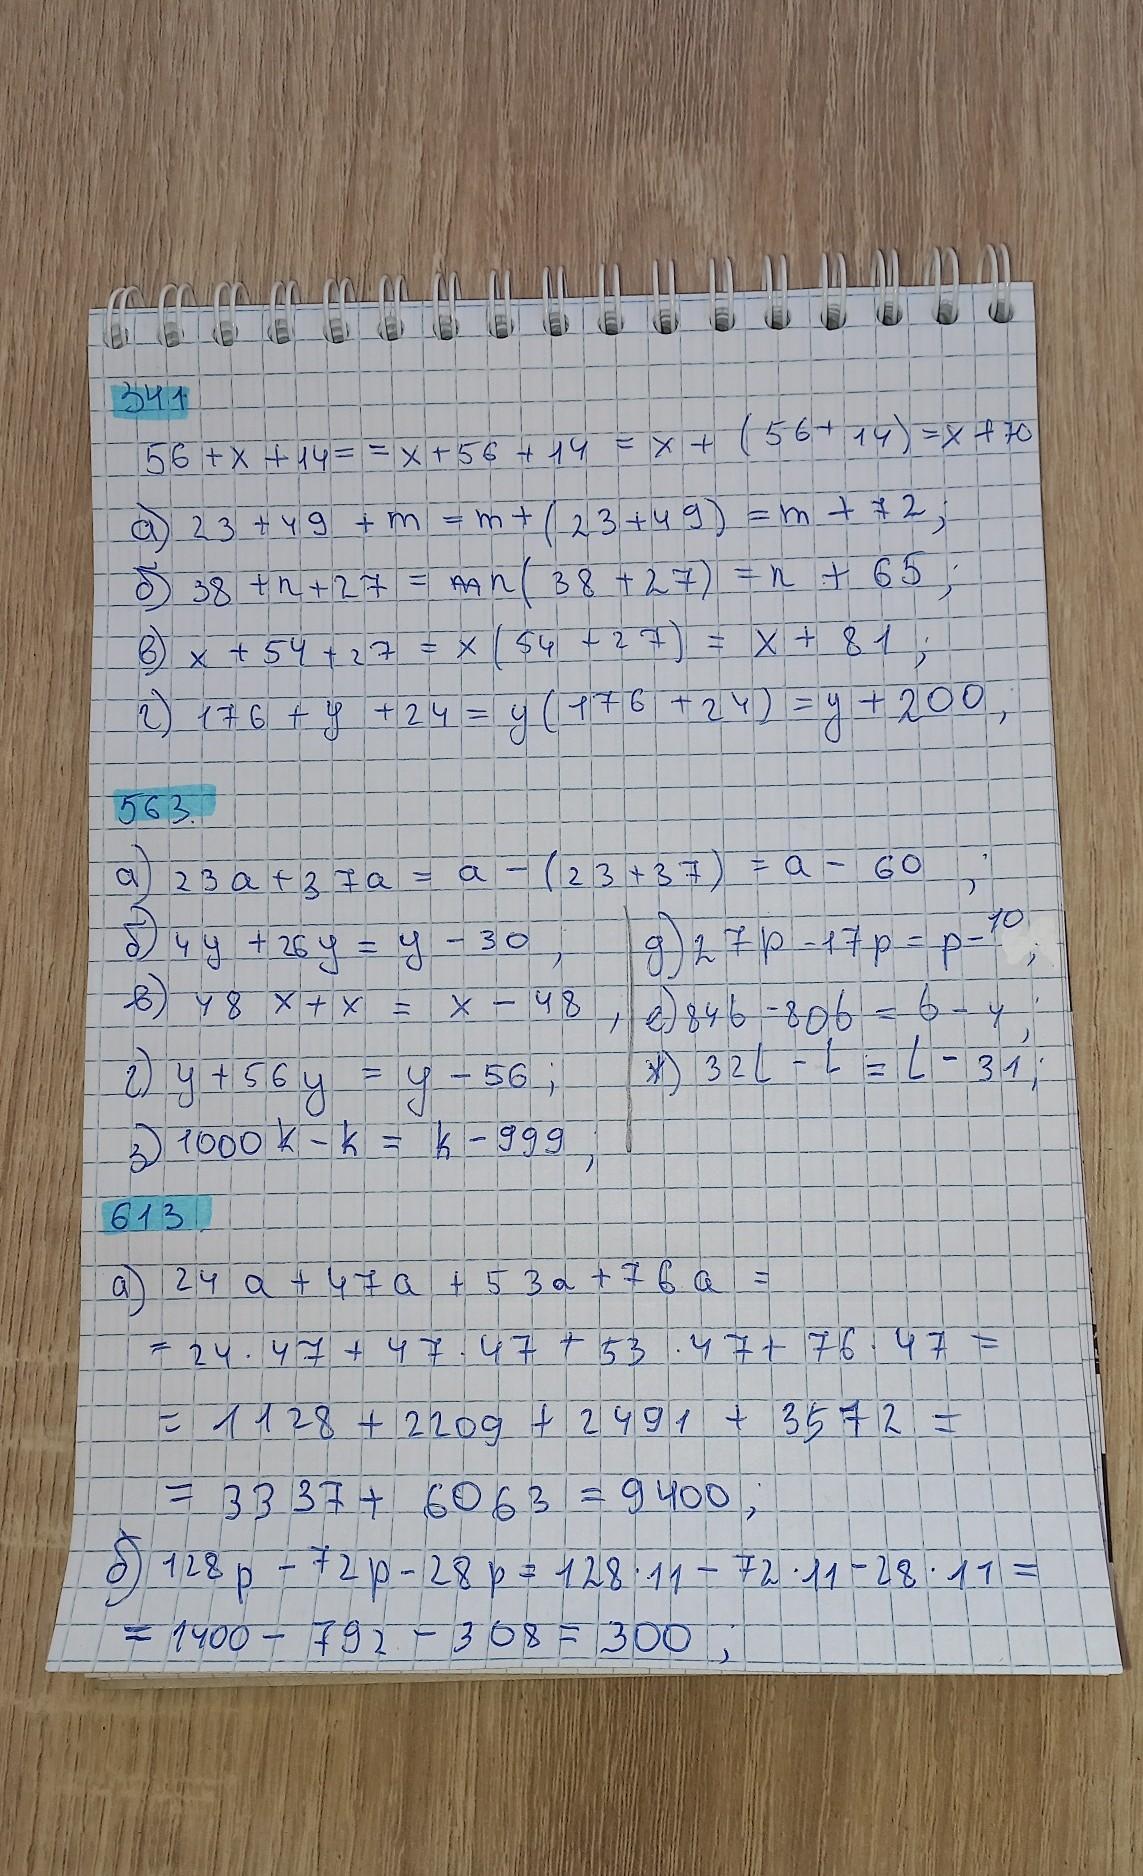 341
56 + x + 14 = = x + 56 + 14 = x + (56 + 14) = x + 70
а) 23 + 49 + m = m + (23 + 49) = m + 72;
б) 38 + n + 27 = n(38 + 27) = n + 65;
в) x + 54 + 27 = x(54 + 27) = x + 81;
г) 176 + y + 24 = y(176 + 24) = y + 200;
563.
а) 23a + 37a = a - (23 + 37) = a - 60;
б) 4y + 26y = y - 30;
в) 48x + x = x - 48;
г) y + 56y = y - 56;
з) 1000k - k = k - 999;
д) 27p - 17p = p - 10;
е) 84b - 80b = b - 4;
ж) 32l - l = l - 31;
613.
а) 24a + 47a + 53a + 76a =
= 24 · 47 + 47 · 47 + 53 · 47 + 76 · 47 =
= 1128 + 2209 + 2491 + 3572 =
= 3337 + 6063 = 9400;
б) 128p - 72p - 28p = 128 · 11 - 72 · 11 - 28 · 11 =
= 1400 - 792 - 308 = 300;